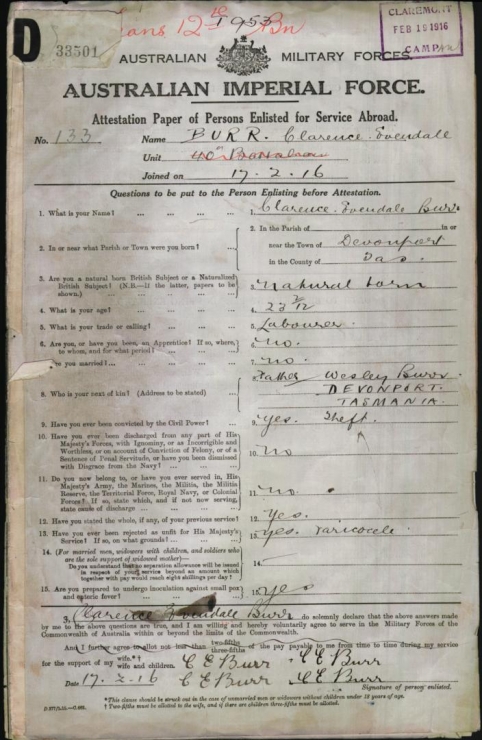 Trans 12th 1953 Bn
CLAREMONT
FEB 19 1916
CAMP
D
33501
AUSTRALIAN MILITARY FORCES.
AUSTRALIAN IMPERIAL FORCE.
Attestation Paper of Persons Enlisted for Service Abroad.
No. 133 Name BURR. Clarence Evendale
Unit 40th Battalion
Joined on 17. 2. 16
Questions to be put to the Person Enlisting before Attestation.
1. What is your Name? ... ... ... ... 1. Clarence Evendale Burr
2. In or near what Parish or Town were you born? ... 2. In the Parish of in or
near the Town of Devonport
in the County of Tas.
3. Are you a natural born British Subject or a Naturalized
British Subject? (N.B.—If the latter, papers to be
shown.) ... ... ... ... 3. Natural born
4. What is your age? ... ... ... ... 4. 23 2/12
5. What is your trade or calling? ... ... ... 5. Labourer.
6. Are you, or have you been, an Apprentice? If so, where,
to whom, and for what period? ... ... ... 6. No.
you married? ... ... ... ... 7. No.
8. Who is your next of kin? (Address to be stated) ... 8. Father Wesley Burr
DEVONPORT.
TASMANIA.
9. Have you ever been convicted by the Civil Power? ... 9. Yes. Theft.
10. Have you ever been discharged from any part of His
Majesty's Forces, with Ignominy, or as Incorrigible and
Worthless, or on account of Conviction of Felony, or of a
Sentence of Penal Servitude, or have you been dismissed
with Disgrace from the Navy? ... ... ... 10. No
11. Do you now belong to, or have you ever served in, His
Majesty's Army, the Marines, the Militia, the Militia
Reserve, the Territorial Force, Royal Navy, or Colonial
Forces? If so, state which, and if not now serving,
state cause of discharge ... ... ... 11. No.
12. Have you stated the whole, if any, of your previous service? 12. Yes.
13. Have you ever been rejected as unfit for His Majesty's
Service? If so, on what grounds? ... ... 13. Yes. Varicocele.
14. (For married men, widowers with children, and soldiers who
are the sole support of widowed mother)—
Do you understand that no separation allowance will be issued
in respect of your service beyond an amount which
together with pay would reach eight shillings per day? 14.
15. Are you prepared to undergo inoculation against small pox
and enteric fever? ... ... ... ... 15. Yes
I, Clarence Evendale Burr do solemnly declare that the above answers made
by me to the above questions are true, and I am willing and hereby voluntarily agree to serve in the Military Forces of the
Commonwealth of Australia within or beyond the limits of the Commonwealth.
And I further agree to allot not less than two-fifths three-fifths of the pay payable to me from time to time during my service
for the support of my wife.*† wife and children. C E Burr C E Burr
Date 17. 2. 16 C E Burr C E Burr
Signature of person enlisted.
*This clause should be struck out in the case of unmarried men or widowers without children under 18 years of age.
† Two-fifths must be allotted to the wife, and if there are children three-fifths must be allotted.